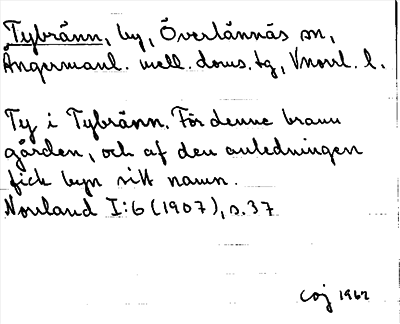 Tybränn, by, Överlännäs sn,
Ångermanl. mell. doms. tg, Vnorrl. l.
Ty i Tybränn. För denne brann
gården, och af den anledningen
fick byn sitt namn.
Norrland I:6 (1907), s. 37
COJ 1962